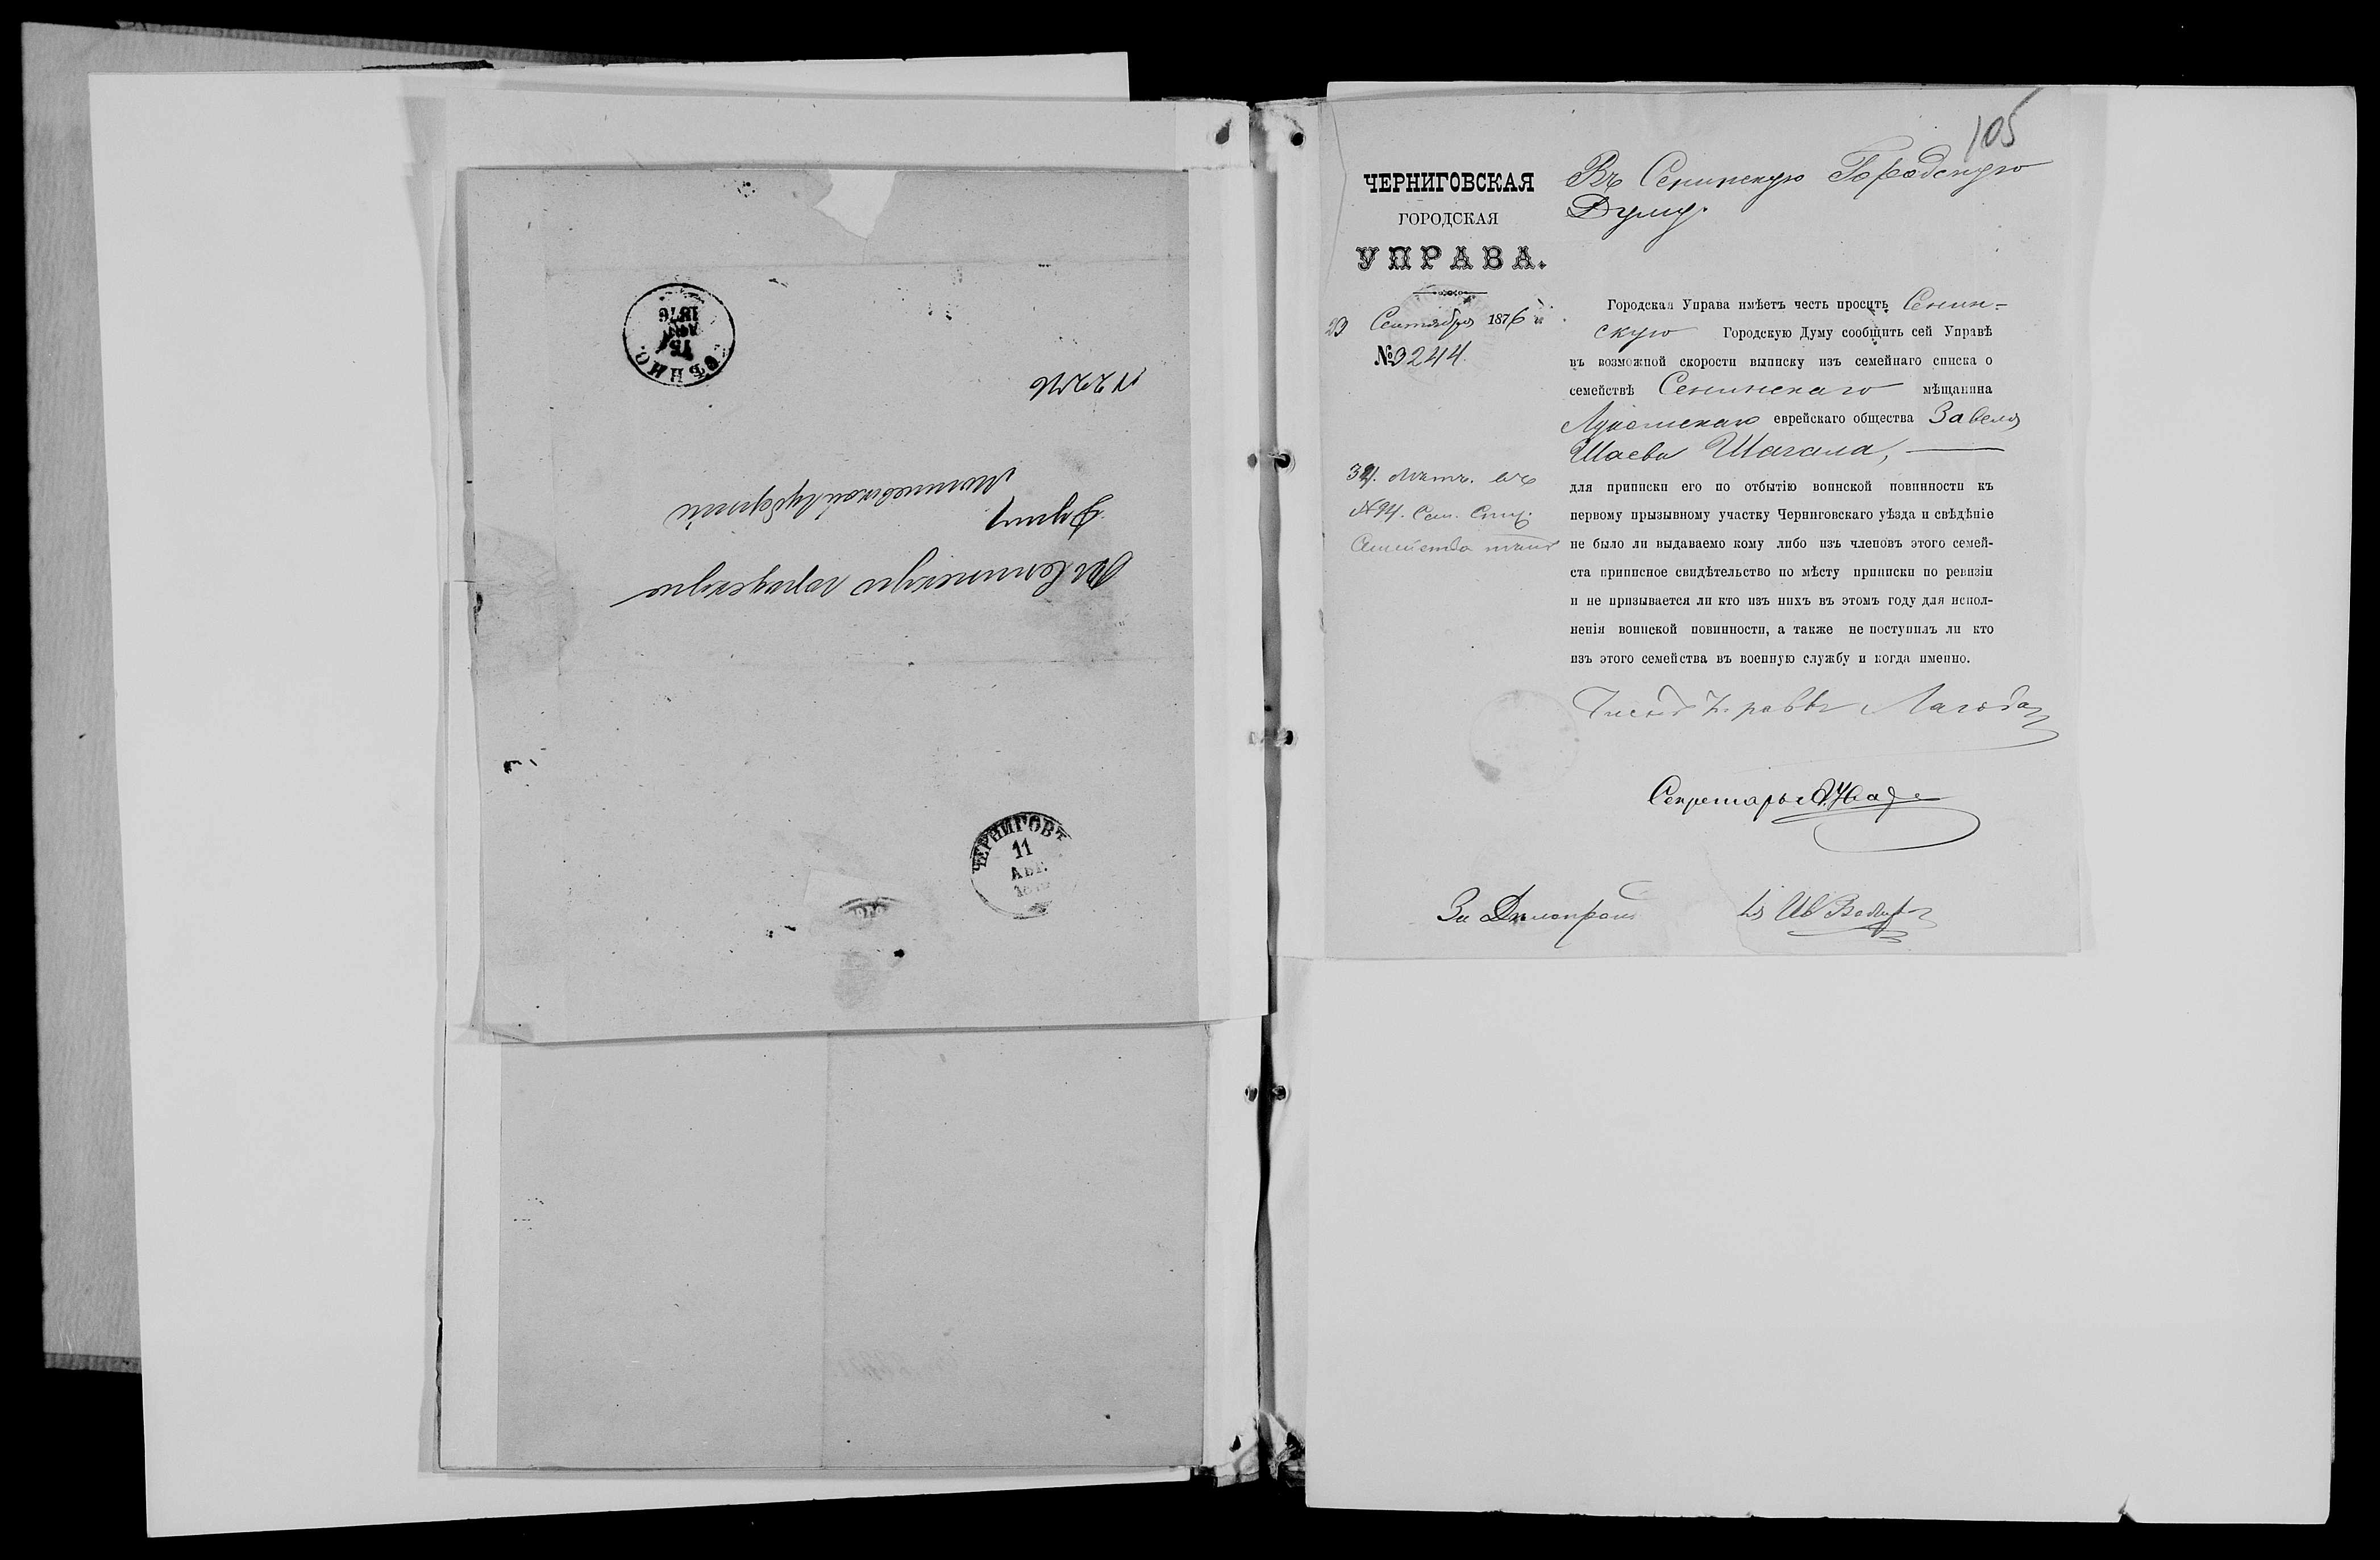 СѢННО.
15
АВГ
1876
№ 2276
Въ Сеннинскую городскую
Думу
Могилевской губерніи
ЧЕРНИГОВЪ
11
АВГ.
105
ЧЕРНИГОВСКАЯ
ГОРОДСКАЯ
УПРАВА.
23 Сентября 1876
№ 3244
Въ Сенинскую Городскую
Думу.
Городская Управа имѣетъ честь просить Сенин-
скую Городскую Думу сообщить сей Управѣ
въ возможной скорости выписку изъ семейнаго списка о
семействѣ Сенинскаго мѣщанина
Лукомскаго еврейскаго общества Завеля
Шаева Шагала,
для приписки его по отбытію воинской повинности къ
первому призывному участку Черниговскаго уѣзда и свѣдѣніе
не было ли выдаваемо кому либо изъ членовъ этого семей-
ста приписное свидѣтельство по мѣсту приписки по ревизіи
и не призывается ли кто изъ нихъ въ этомъ году для испол-
ненія воинской повинности, а также не поступилъ ли кто
изъ этого семейства въ военную службу и когда именно.
№ 94. Сем. Спис.
Членъ Управы Лагода
Секретарь
За